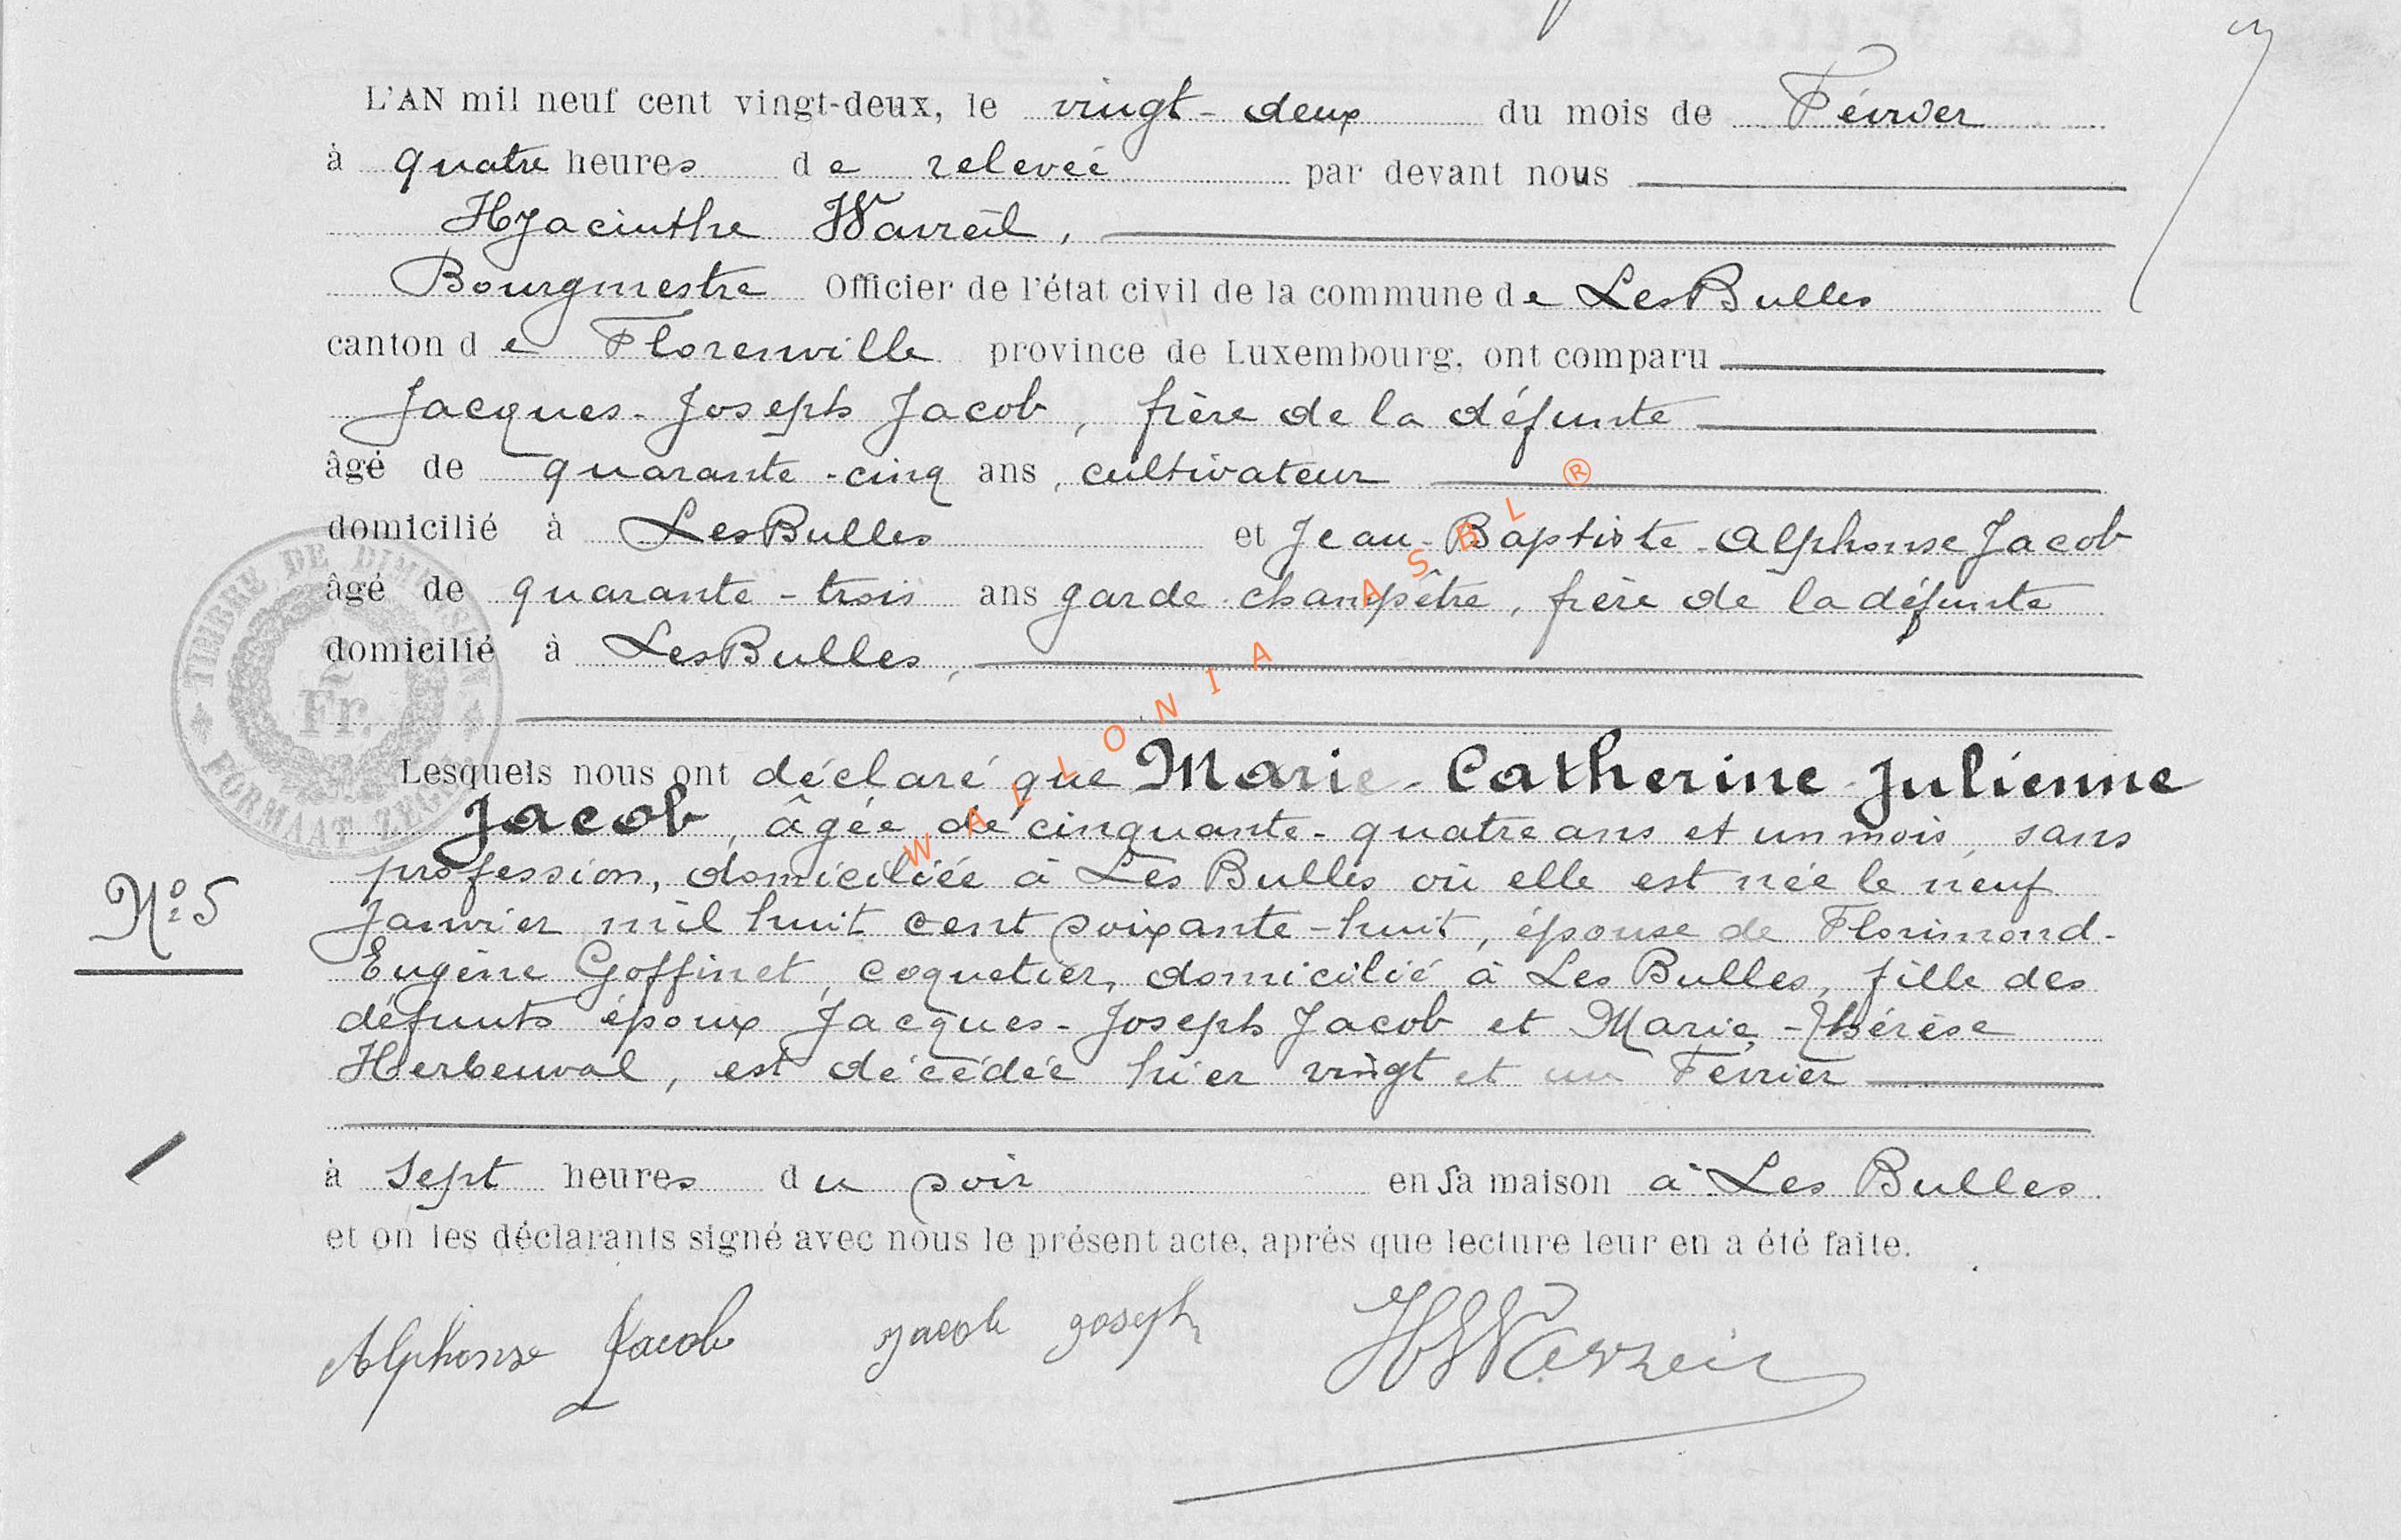 3
L'AN mil neuf cent vingt-deux, le vingt-deux du mois de Février
à quatre heures de relevée par devant nous
Hyacinthe Wavreil,
Bourgmestre Officier de l'état civil de la commune de Les Bulles
canton de Florenville province de Luxembourg, ont comparu
Jacques-Joseph Jacob, frère de la défunte
âgé de quarante-cinq ans, cultivateur
domicilié à Les Bulles et Jean-Baptiste-Alphonse Jacob
âgé de quarante-trois ans garde champêtre, frère de la défunte
domicilié à Les Bulles,
TIMBRE DE DIMENSION
2 Fr.
FORMAAT ZEGEL
Lesquels nous ont déclaré que Marie-Catherine-Julienne
Jacob, âgée de cinquante-quatre ans et un mois, sans
profession, domiciliée à Les Bulles où elle est née le neuf
Nº 5
Janvier mil huit cent soixante-huit, épouse de Florimond-
Eugène Goffinet, coquetier, domicilié à Les Bulles, fille des
défunts époux Jacques-Joseph Jacob et Marie-Thérèse
Herbeuval, est décédée hier vingt et un Février
à sept heures du soir en sa maison à Les Bulles.
et on les déclarants signé avec nous le présent acte, après que lecture leur en a été faite.
Alphonse Jacob Jacob Joseph
WALLONIA ASBL ®